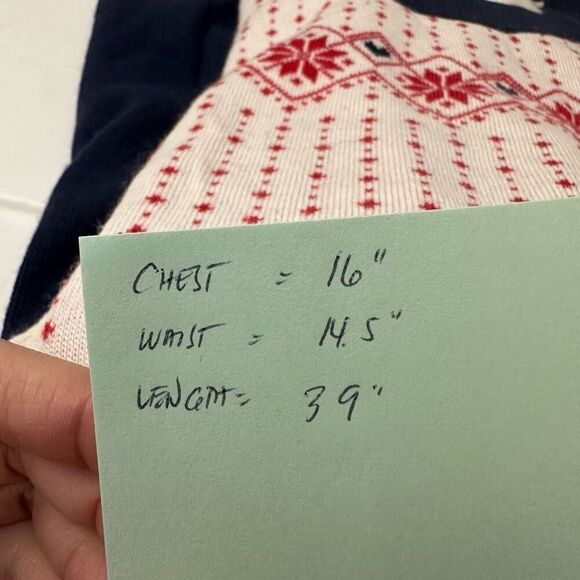 CHEST = 16"
WAIST = 14.5"
LENGTH = 39"